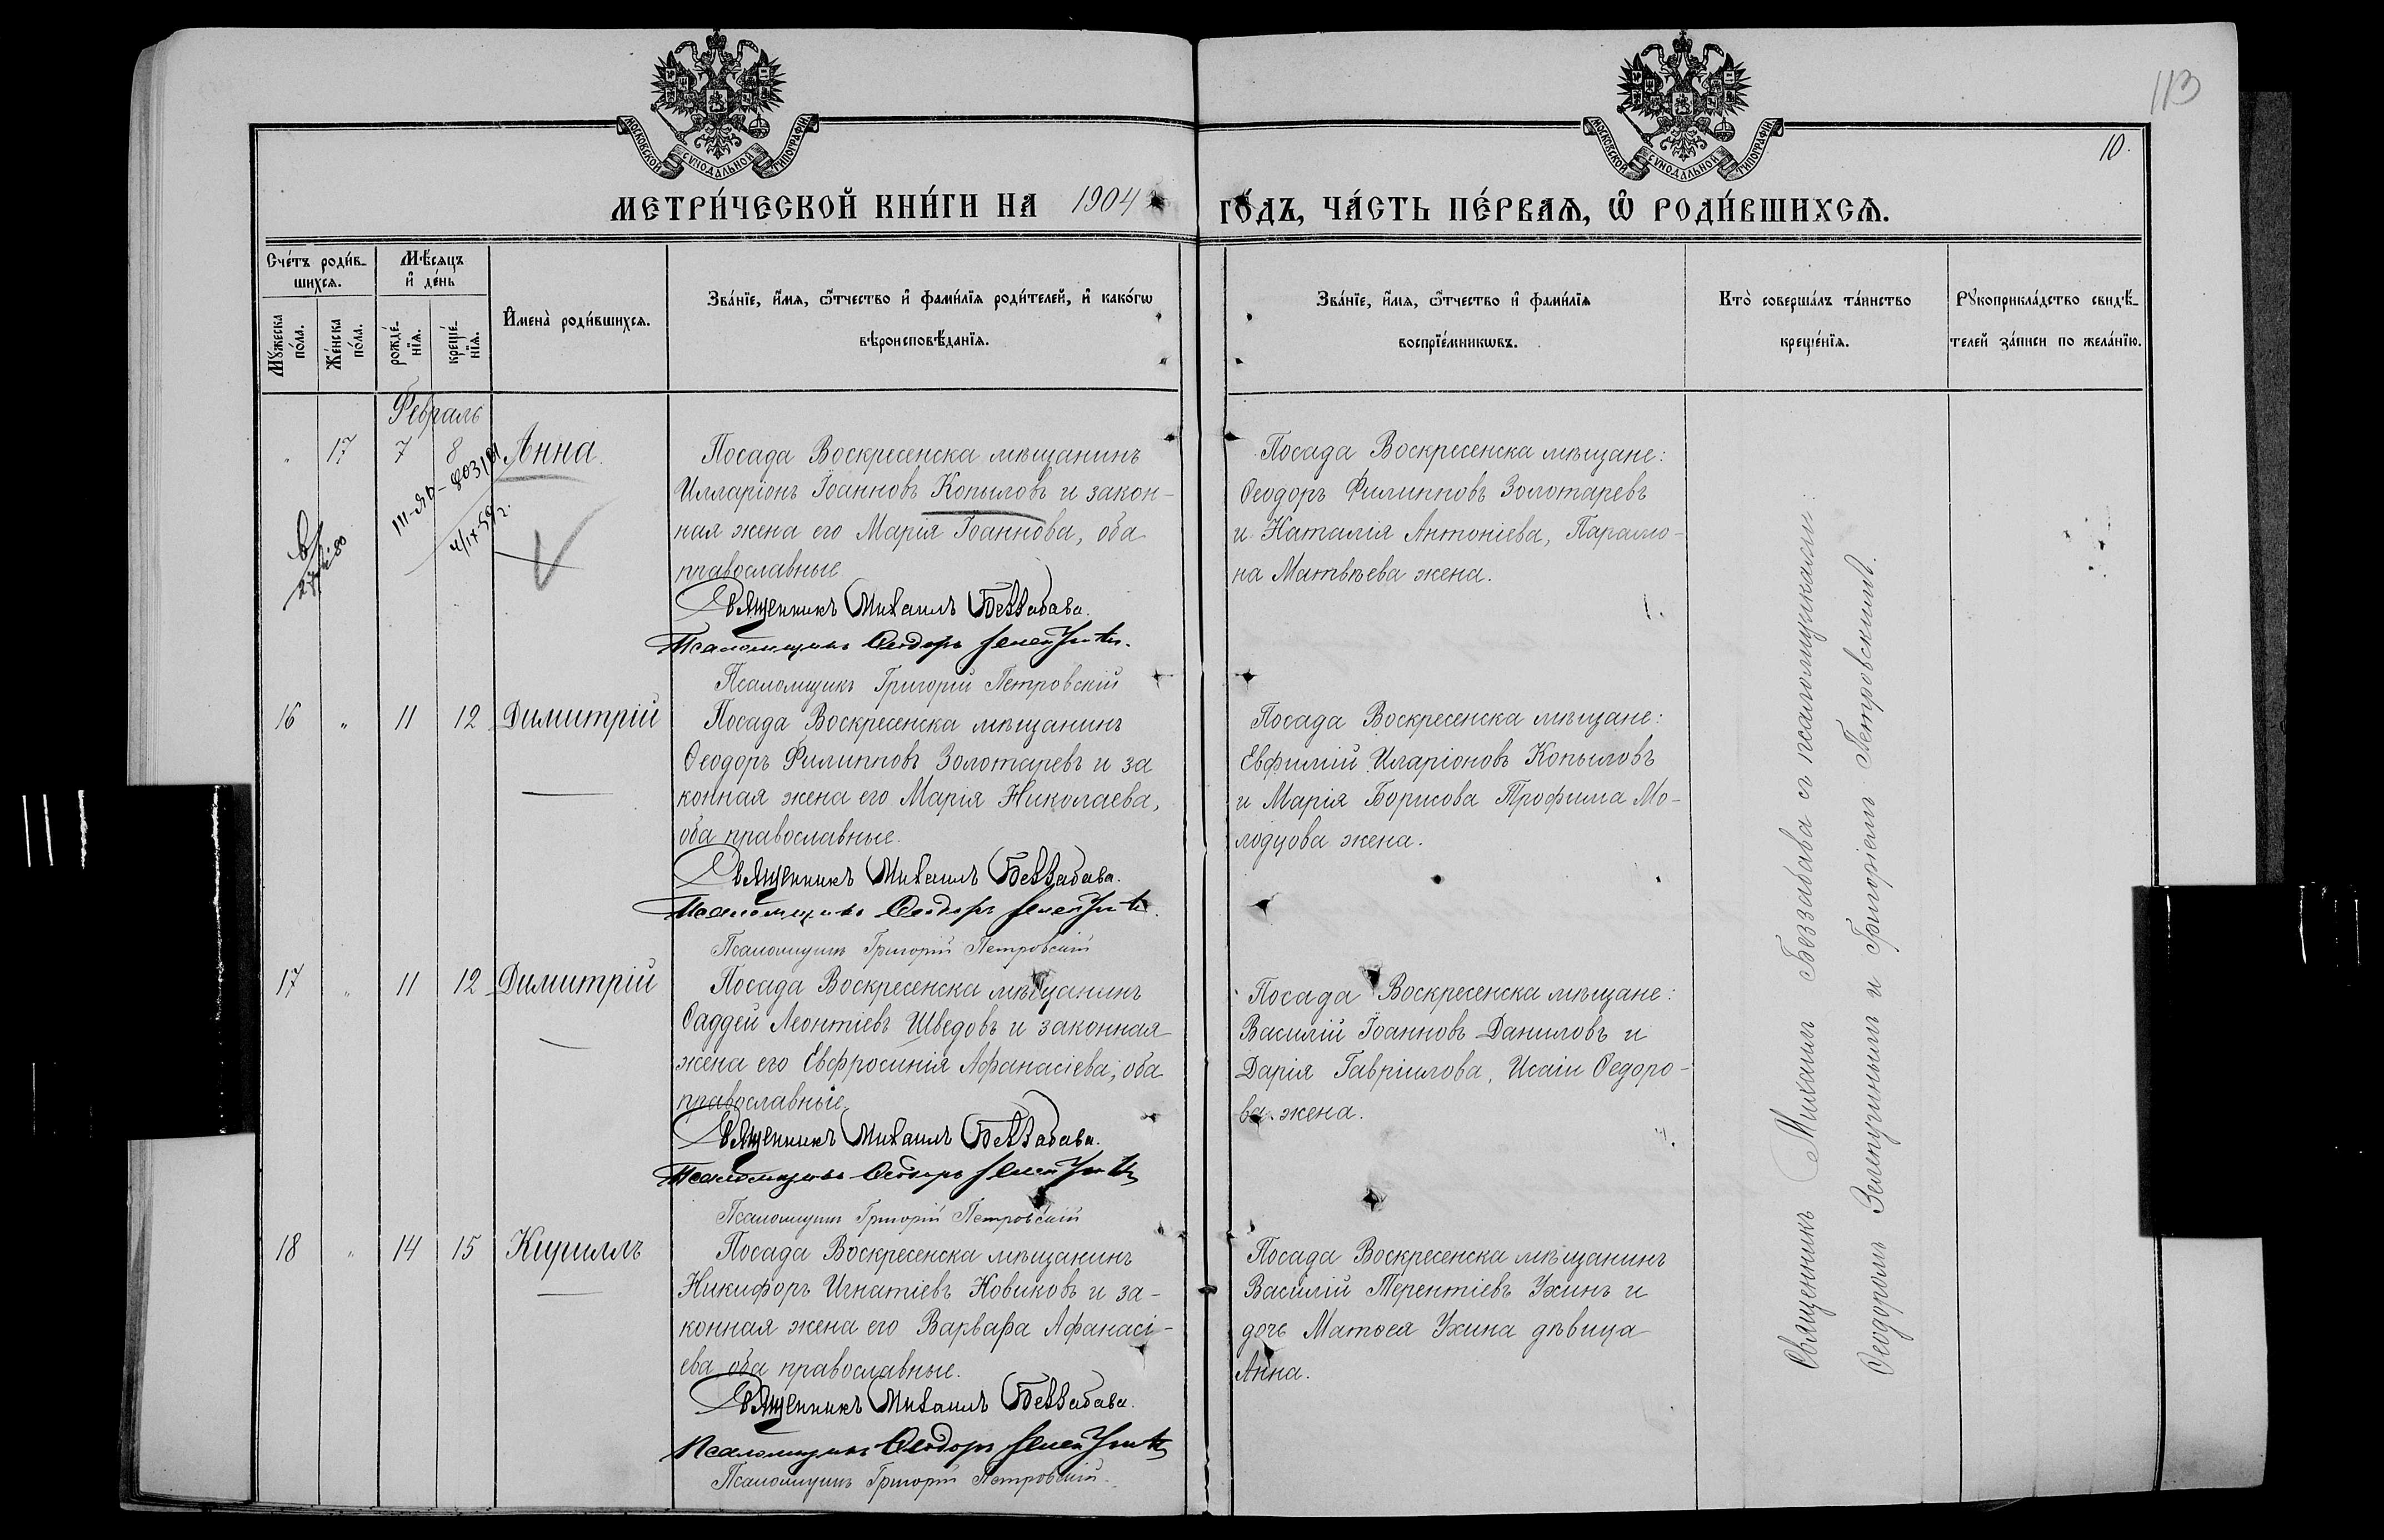 113
10.
МОСКОВСКОЙ СѴНОДАЛЬНОЙ ТИПОГРАФІИ.
МОСКОВСКОЙ СѴНОДАЛЬНОЙ ТИПОГРАФІИ.
МЕТРИ́ЧЕСКОЙ КНИ́ГИ НА 1904
ГО́ДЪ, ЧА́СТЬ ПЕ́РВАѦ, Ѽ РОДИ́ВШИХСѦ.
Сче́тъ роди́в-
шихсѧ.
Мѣ́сѧцъ
и҆ де́нь
Мꙋ́жеска
по́ла.
Же́нска
по́ла.
рожде́-
нїѧ.
креще́-
нїѧ.
И҆мена̀ роди́вшихсѧ.
Зва́нїе, и҆́мѧ, ѻ҆́тчество и҆ фами́лїѧ роди́телей, и҆ како́гѡ
вѣроисповѣ́данїѧ.
Зва́нїе, и҆́мѧ, ѻ҆́тчество и҆ фами́лїѧ
воспрїе́мникѡвъ.
Кто̀ соверша́лъ та́инство
креще́нїѧ.
Рꙋкоприкла́дство свидѣ́-
телей за́писи по жела́нїю.
Февраль
" 17 7 8 Анна.
III-ЯР-803191
4/IX-59г.
Посада Воскресенска мѣщанинъ
Илларіонъ Іоанновъ Копыловъ и закон-
ная жена его Марія Іоаннова, оба
православные
Священникъ Михаилъ Беззабава.
Псаломщикъ Ѳеодоръ
Псаломщикъ Григорій Петровскій
Посада Воскресенска мѣщане:
Ѳеодоръ Филипповъ Золотаревъ
и Наталія Антоніева, Парамо-
на Матвѣева жена.
16 " 11 12 Димитрій
Посада Воскресенска мѣщанинъ
Ѳеодоръ Филипповъ Золотаревъ и за
конная жена его Марія Николаева,
оба православные.
Священникъ Михаилъ Беззабава.
Псаломщикъ Ѳеодоръ
Псаломщикъ Григорій Петровскій
Посада Воскресенска мѣщане:
Евфимій Иларіоновъ Копыловъ
и Марія Борисова Трофима Мо-
лодцова жена.
17 " 11 12 Димитрій
Посада Воскресенска мѣщанинъ
Ѳаддей Леонтіевъ Шведовъ и законная
жена его Евфросинія Афанасіева, оба
православные.
Священникъ Михаилъ Беззабава.
Псаломщикъ Ѳеодоръ
Псаломщикъ Григорій Петровскій
Посада Воскресенска мѣщане:
Василій Іоанновъ Даниловъ и
Дарія Гавріилова, Исаіи Ѳедоро-
ва жена.
18 " 14 15 Кириллъ
Посада Воскресенска мѣщанинъ
Никифоръ Игнатіевъ Новиковъ и за-
конная жена его Варвара Афанасі-
ева оба православные.
Священникъ Михаилъ Беззабава.
Псаломщикъ Ѳеодоръ
Псаломщикъ Григорій Петровскій.
Посада Воскресенска мѣщанинъ
Василій Терентіевъ Ухинъ и
дочь Матѳея Ухина дѣвица
Анна.
Священникъ Михаилъ Беззабава съ псаломщиками:
Ѳеодоромъ Зеленугинымъ и Григоріемъ Петровскимъ.